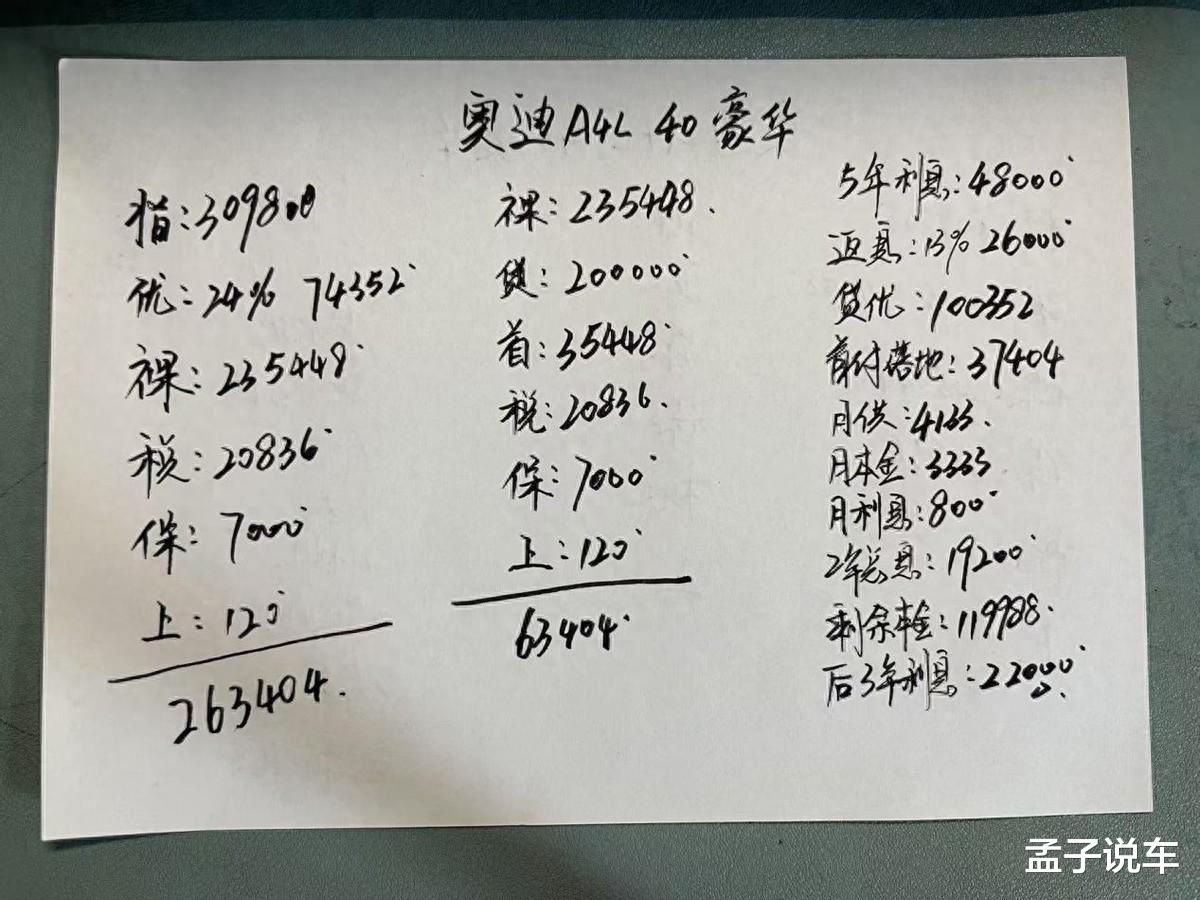 奥迪A4L 40豪华
指:309800
优:24% 74352
裸:235448
税:20836
保:7000
上:120
263404.
裸:235448.
贷:200000
首:35448
税:20836.
保:7000
上:120
63404
5年利息:48000
返息:13% 26000
贷优:100352
首付落地:37404
月供:4133.
月本金:3333
月利息:800
2年总息:19200
剩余本金:119988.
后3年利息:22000
孟子说车